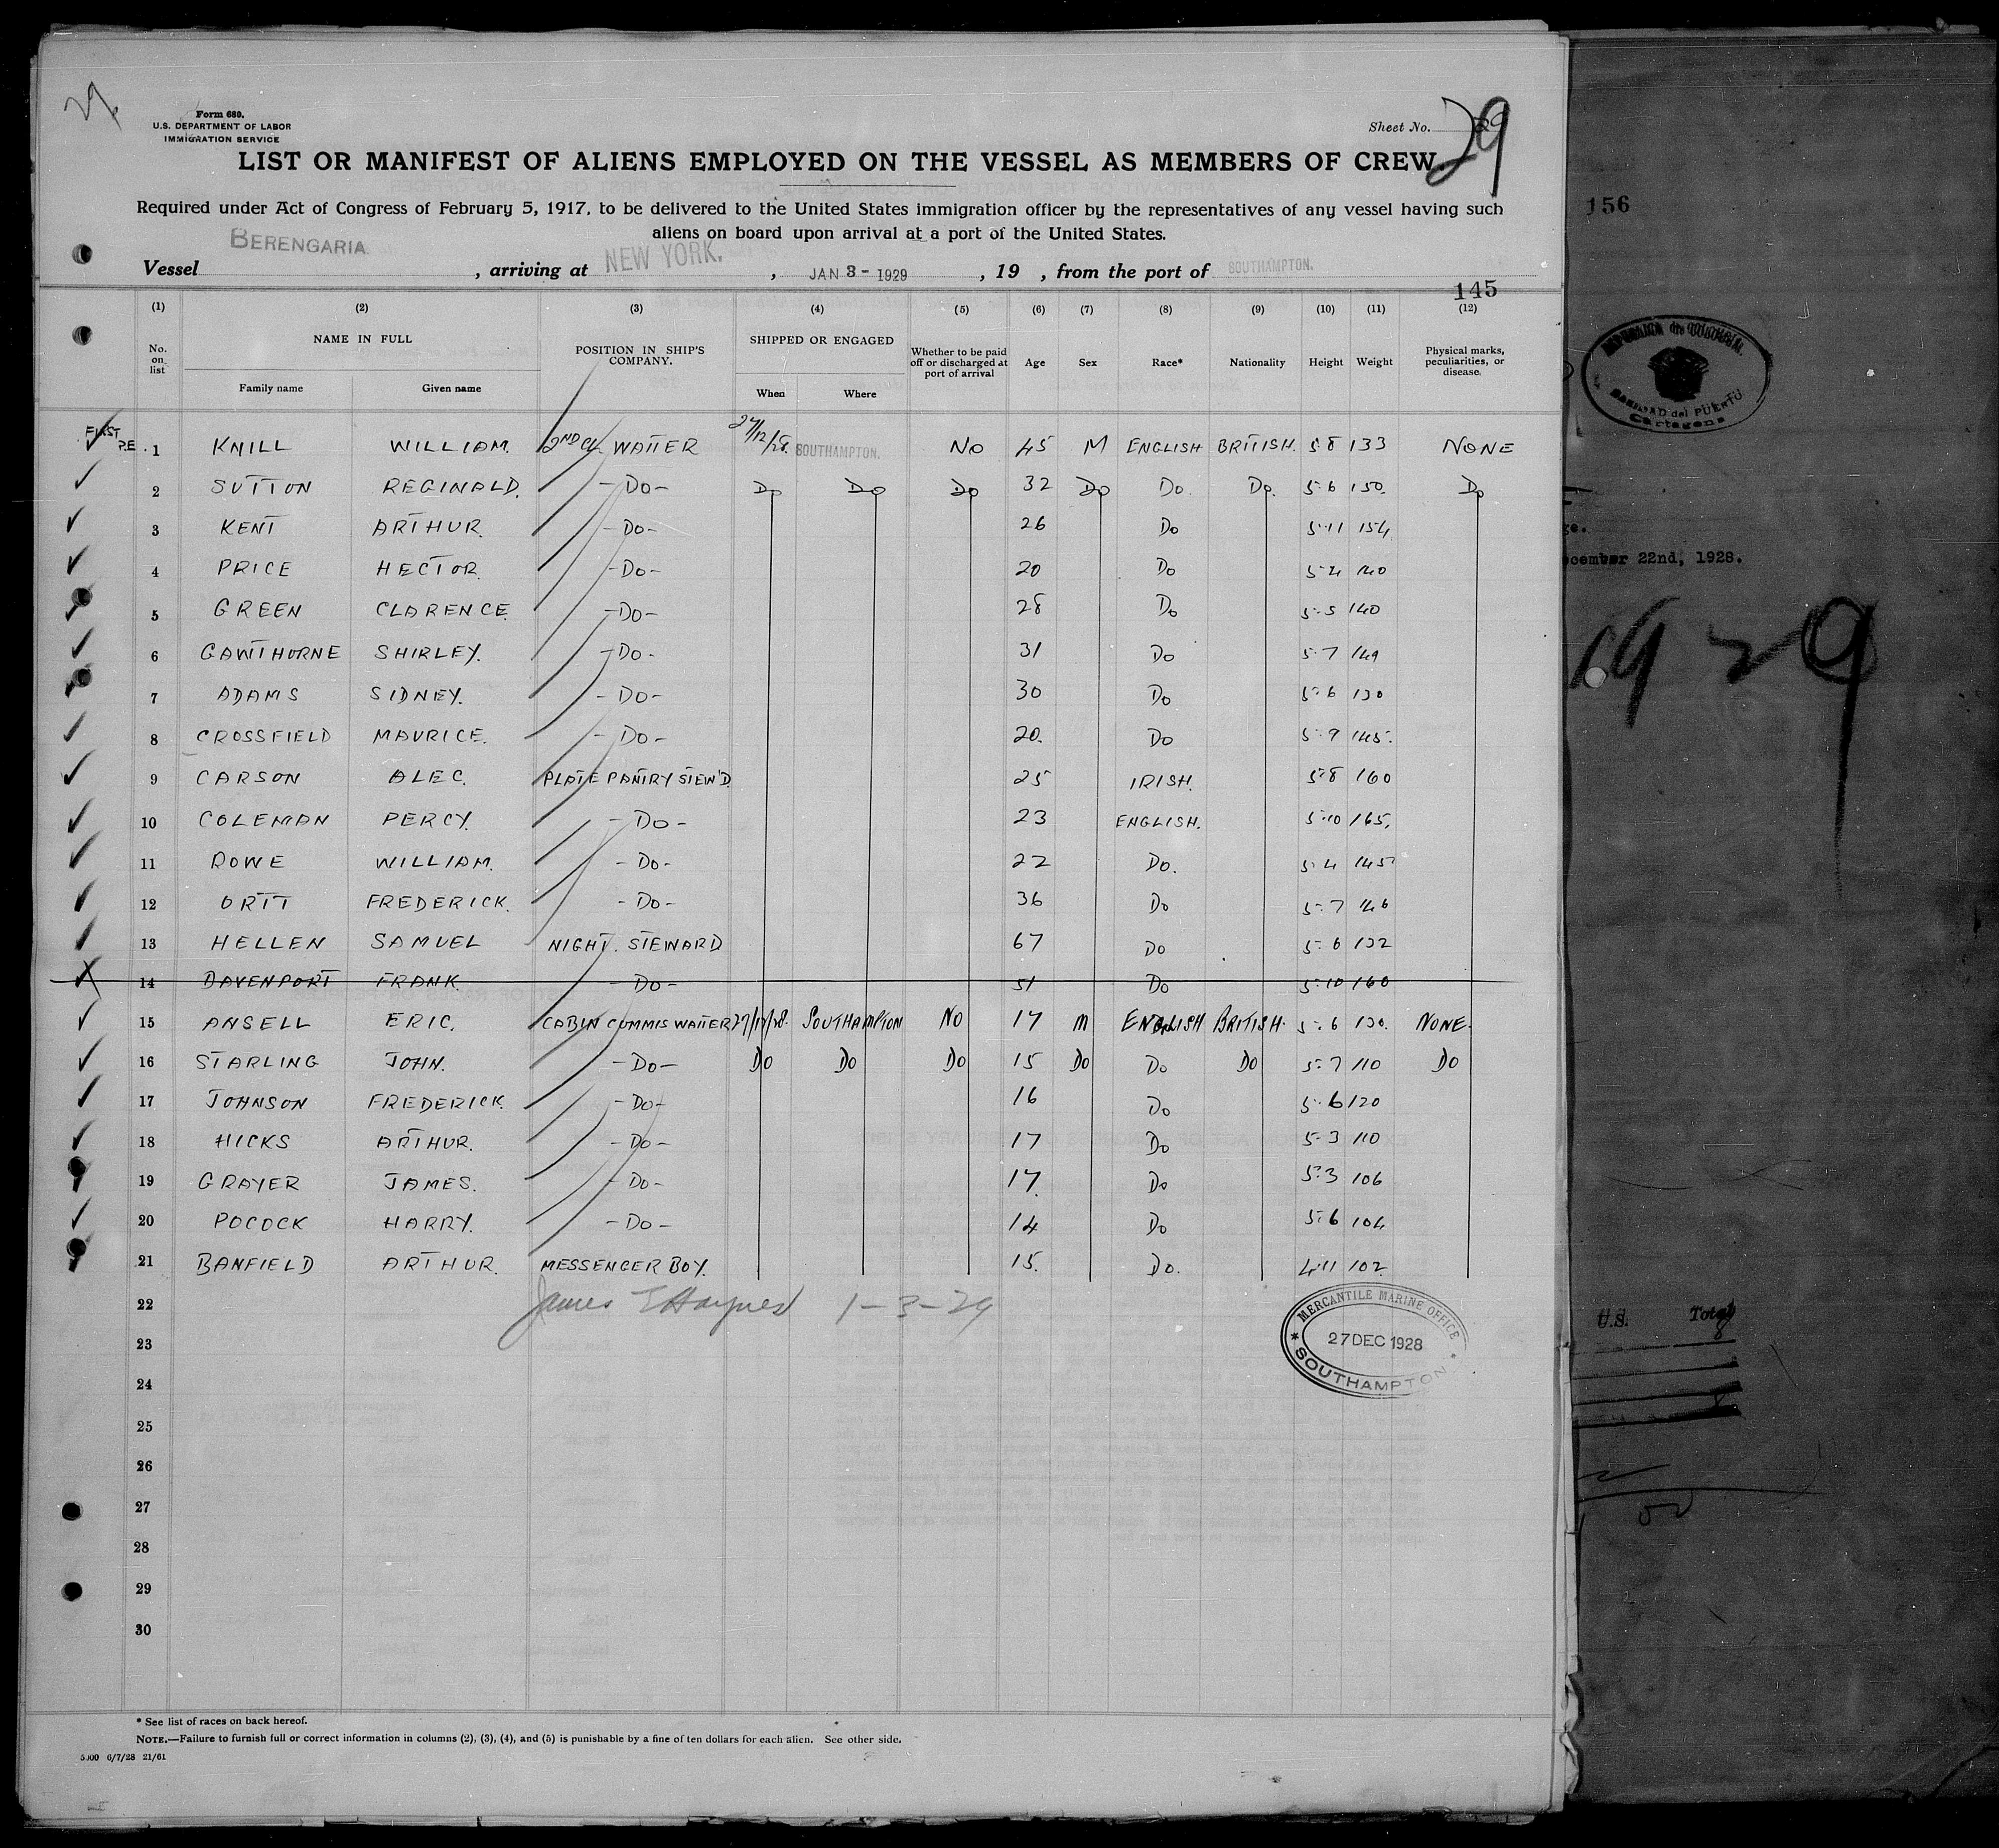 29
Form 680.
U.S. DEPARTMENT OF LABOR
IMMIGRATION SERVICE
Sheet No. 29
LIST OR MANIFEST OF ALIENS EMPLOYED ON THE VESSEL AS MEMBERS OF CREW.
Required under Act of Congress of February 5, 1917, to be delivered to the United States immigration officer by the representatives of any vessel having such
aliens on board upon arrival at a port of the United States.
Vessel BERENGARIA , arriving at NEW YORK. , JAN 3 - 1929 , 19 , from the port of SOUTHAMPTON.
145
(1) (2) (3) (4) (5) (6) (7) (8) (9) (10) (11) (12)
No. on list NAME IN FULL Family name Given name POSITION IN SHIP'S COMPANY. SHIPPED OR ENGAGED When Where Whether to be paid off or discharged at port of arrival Age Sex Race* Nationality Height Weight Physical marks, peculiarities, or disease.
FIRST P.E. 1 KNILL WILLIAM. 2ND CL. WAITER 27/12/28. SOUTHAMPTON. NO 45 M ENGLISH BRITISH. 5·8 133 NONE
2 SUTTON REGINALD. -DO- DO DO DO 32 DO DO. DO. 5·6 150. DO
3 KENT ARTHUR. -DO- 26 DO 5·11 154
4 PRICE HECTOR. -DO- 20 DO 5·4 140
5 GREEN CLARENCE. -DO- 28 DO 5·5 140
6 GAWTHORNE SHIRLEY. -DO- 31 DO 5·7 149
7 ADAMS SIDNEY. -DO- 30 DO 5·6 130
8 CROSSFIELD MAURICE. -DO- 20. DO 5·9 145.
9 CARSON ALEC. PLATE PANTRY STEW'D. 25 IRISH. 5·8 160
10 COLEMAN PERCY. -DO- 23 ENGLISH. 5·10 165.
11 ROWE WILLIAM. -DO- 22 DO. 5·4 145
12 ORTT FREDERICK. -DO- 36 DO 5·7 146
13 HELLEN SAMUEL NIGHT. STEWARD 67 DO 5·6 132
14 DAVENPORT FRANK. -DO- 51 DO 5·10 160
15 ANSELL ERIC. CABIN COMMIS WAITER 27/12/28. SOUTHAMPTON NO 17 M ENGLISH BRITISH. 5·6 130. NONE.
16 STARLING JOHN. -DO- DO DO DO 15 DO DO DO 5·7 110 DO
17 JOHNSON FREDERICK. -DO- 16 DO 5·6 120
18 HICKS ARTHUR. -DO- 17 DO 5·3 110
19 GRAYER JAMES. -DO- 17. DO 5·3 106
20 POCOCK HARRY. -DO- 14 DO 5·6 104
21 BANFIELD ARTHUR. MESSENGER BOY. 15. DO. 4·11 102.
22 James T Haynes 1-3-29
23
24
25
26
27
28
29
30
MERCANTILE MARINE OFFICE
27 DEC 1928
SOUTHAMPTON
* See list of races on back hereof.
NOTE.—Failure to furnish full or correct information in columns (2), (3), (4), and (5) is punishable by a fine of ten dollars for each alien. See other side.
5000 6/7/28 21/61
156
SANIDAD del PUERTO
Cartagena
December 22nd, 1928.
19 29
U.S. Total